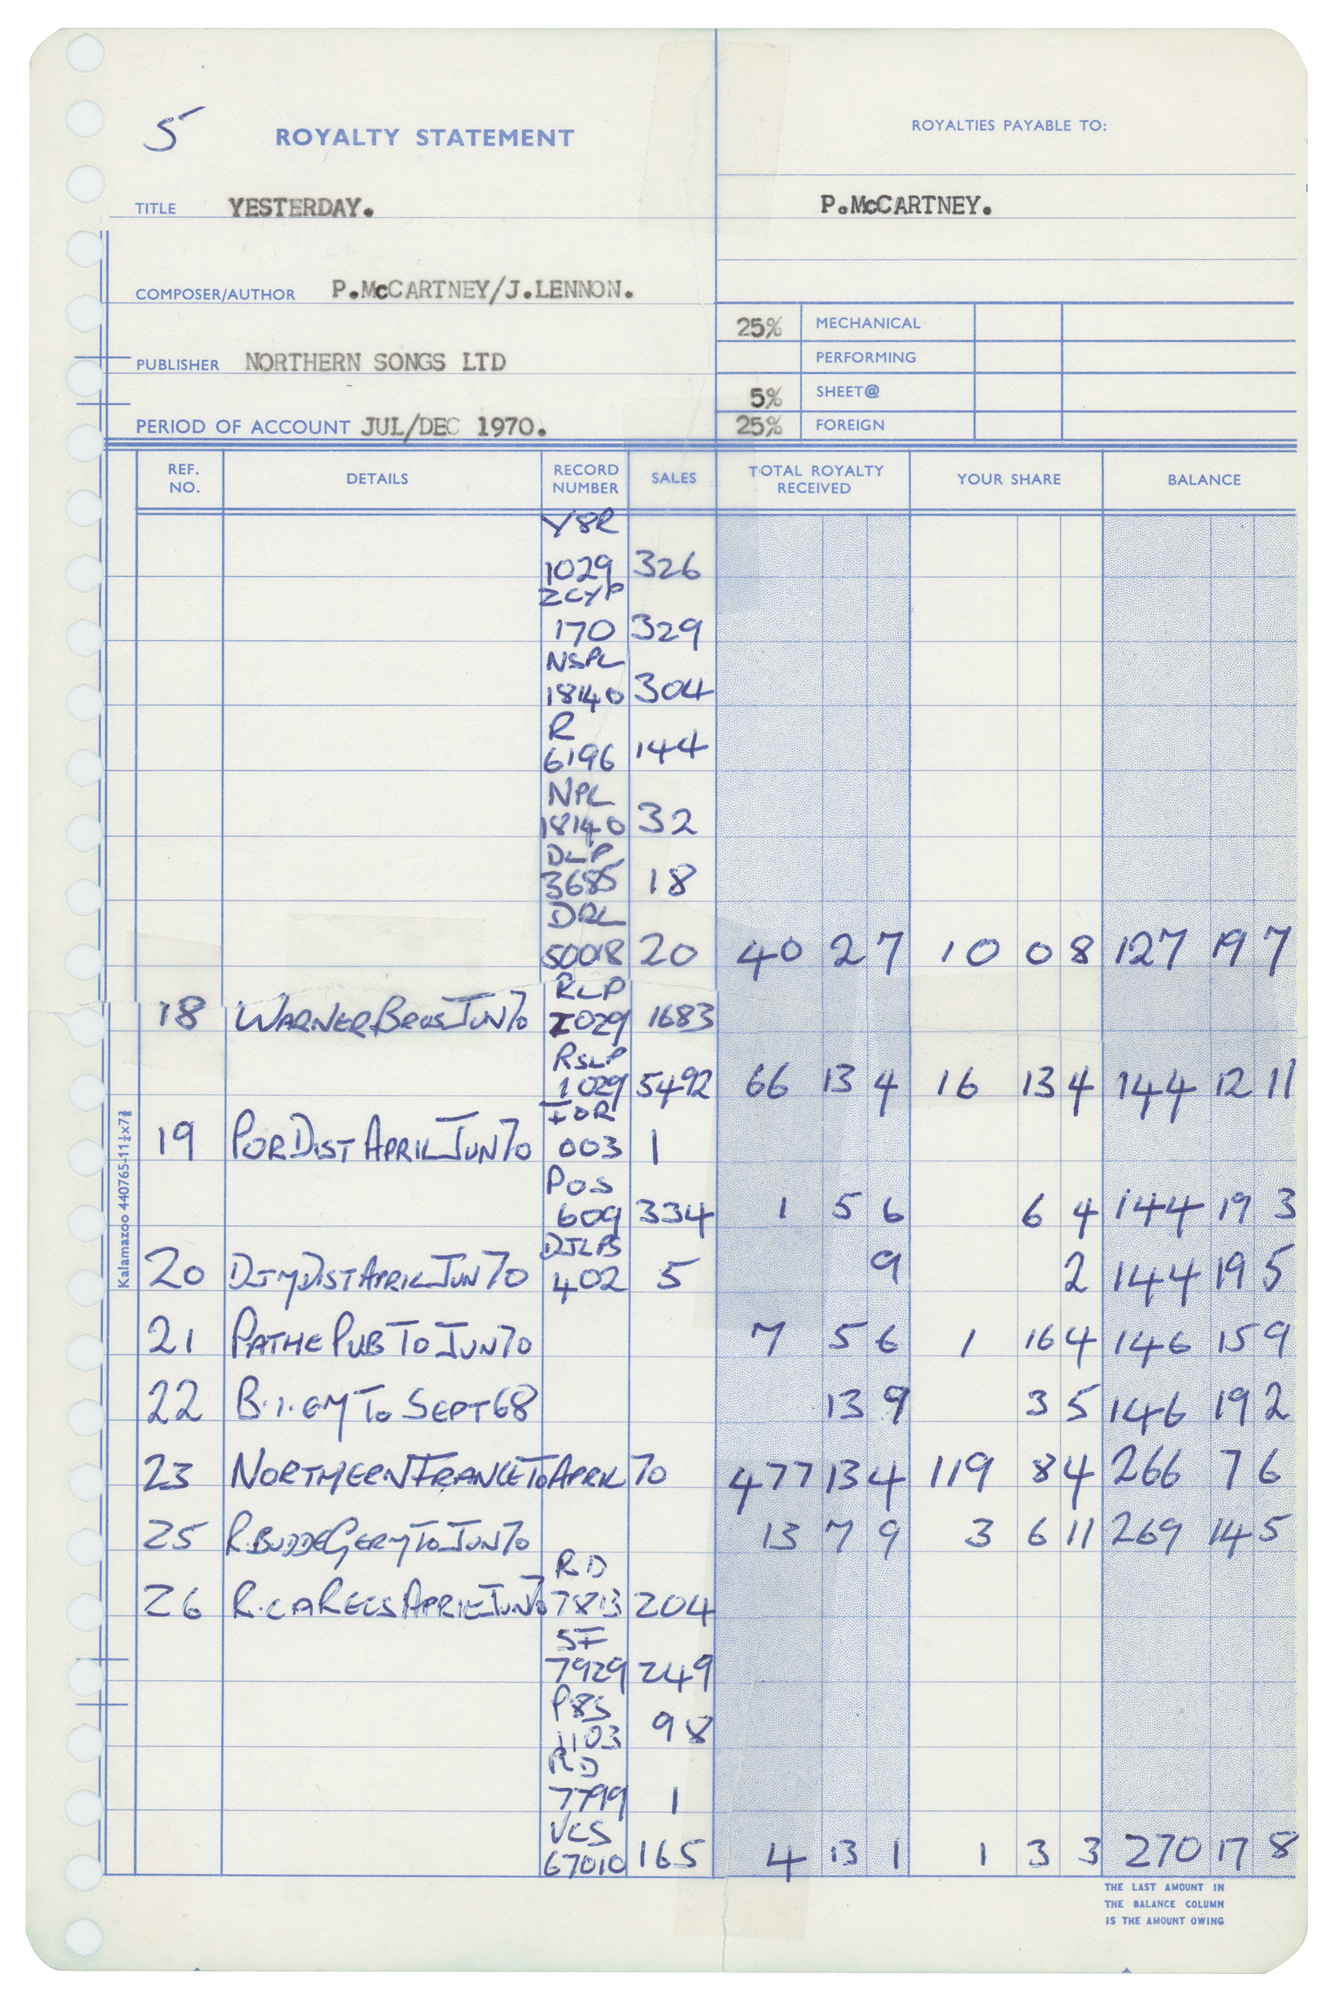 5
ROYALTY STATEMENT
ROYALTIES PAYABLE TO:
TITLE YESTERDAY.
P.McCARTNEY.
COMPOSER/AUTHOR P.McCARTNEY/J.LENNON.
25% MECHANICAL
PERFORMING
PUBLISHER NORTHERN SONGS LTD
5% SHEET@
PERIOD OF ACCOUNT JUL/DEC 1970.
25% FOREIGN
REF. NO. DETAILS RECORD NUMBER SALES TOTAL ROYALTY RECEIVED YOUR SHARE BALANCE
Y8R
1029 326
ZCYP
170 329
NSPL
18140 304
R
6196 144
NPL
18140 32
DLP
3685 18
DRL
50018 20 40 2 7 10 0 8 127 19 7
RLP
18 WARNER BROS JUN 70 1029 1683
RSLP
1029 5492 66 13 4 16 13 4 144 12 11
IOR
19 POR DIST APRIL JUN 70 003 1
POS
609 334 1 5 6 6 4 144 19 3
DJLPS
20 DJM DIST APRIL JUN 70 402 5 9 2 144 19 5
21 PATHE PUB TO JUN 70 7 5 6 1 16 4 146 15 9
22 B.I.EM TO SEPT 68 13 9 3 5 146 19 2
23 NORTHERN FRANCE TO APRIL 70 477 13 4 119 8 4 266 7 6
25 R.BUDDE GERMY TO JUN 70 13 7 9 3 6 11 269 14 5
RD
26 R.C.A RECS APRIL JUN 70 7813 204
SF
7929 249
P8S
1103 98
RD
7799 1
VCS
67010 165 4 13 1 1 3 3 270 17 8
THE LAST AMOUNT IN
THE BALANCE COLUMN
IS THE AMOUNT OWING
Kalamazoo 440765-11¼x7⅜